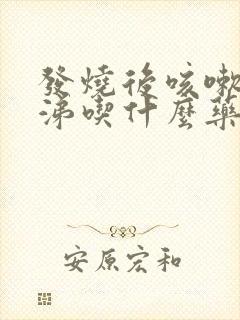 發燒後咳嗽
涕喫什麼藥
安原宏和